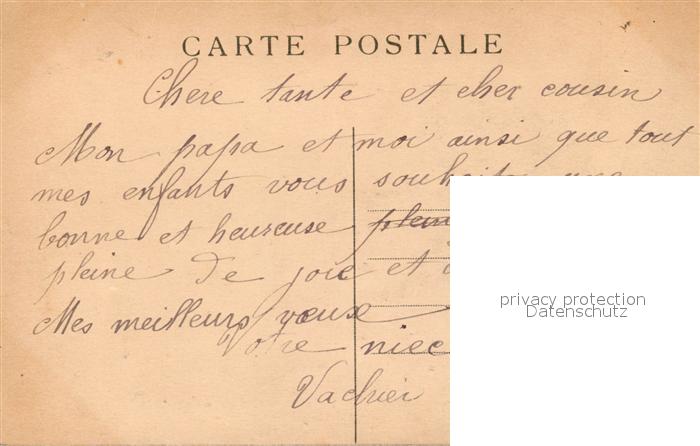 CARTE POSTALE
Chere tante et cher cousin
Mon papa et moi ainsi que tout
mes enfants vous souhaite une
bonne et heureuse
pleine de joie et
Mes meilleurs vœux
Votre niec
Vachier
privacy protection
Datenschutz